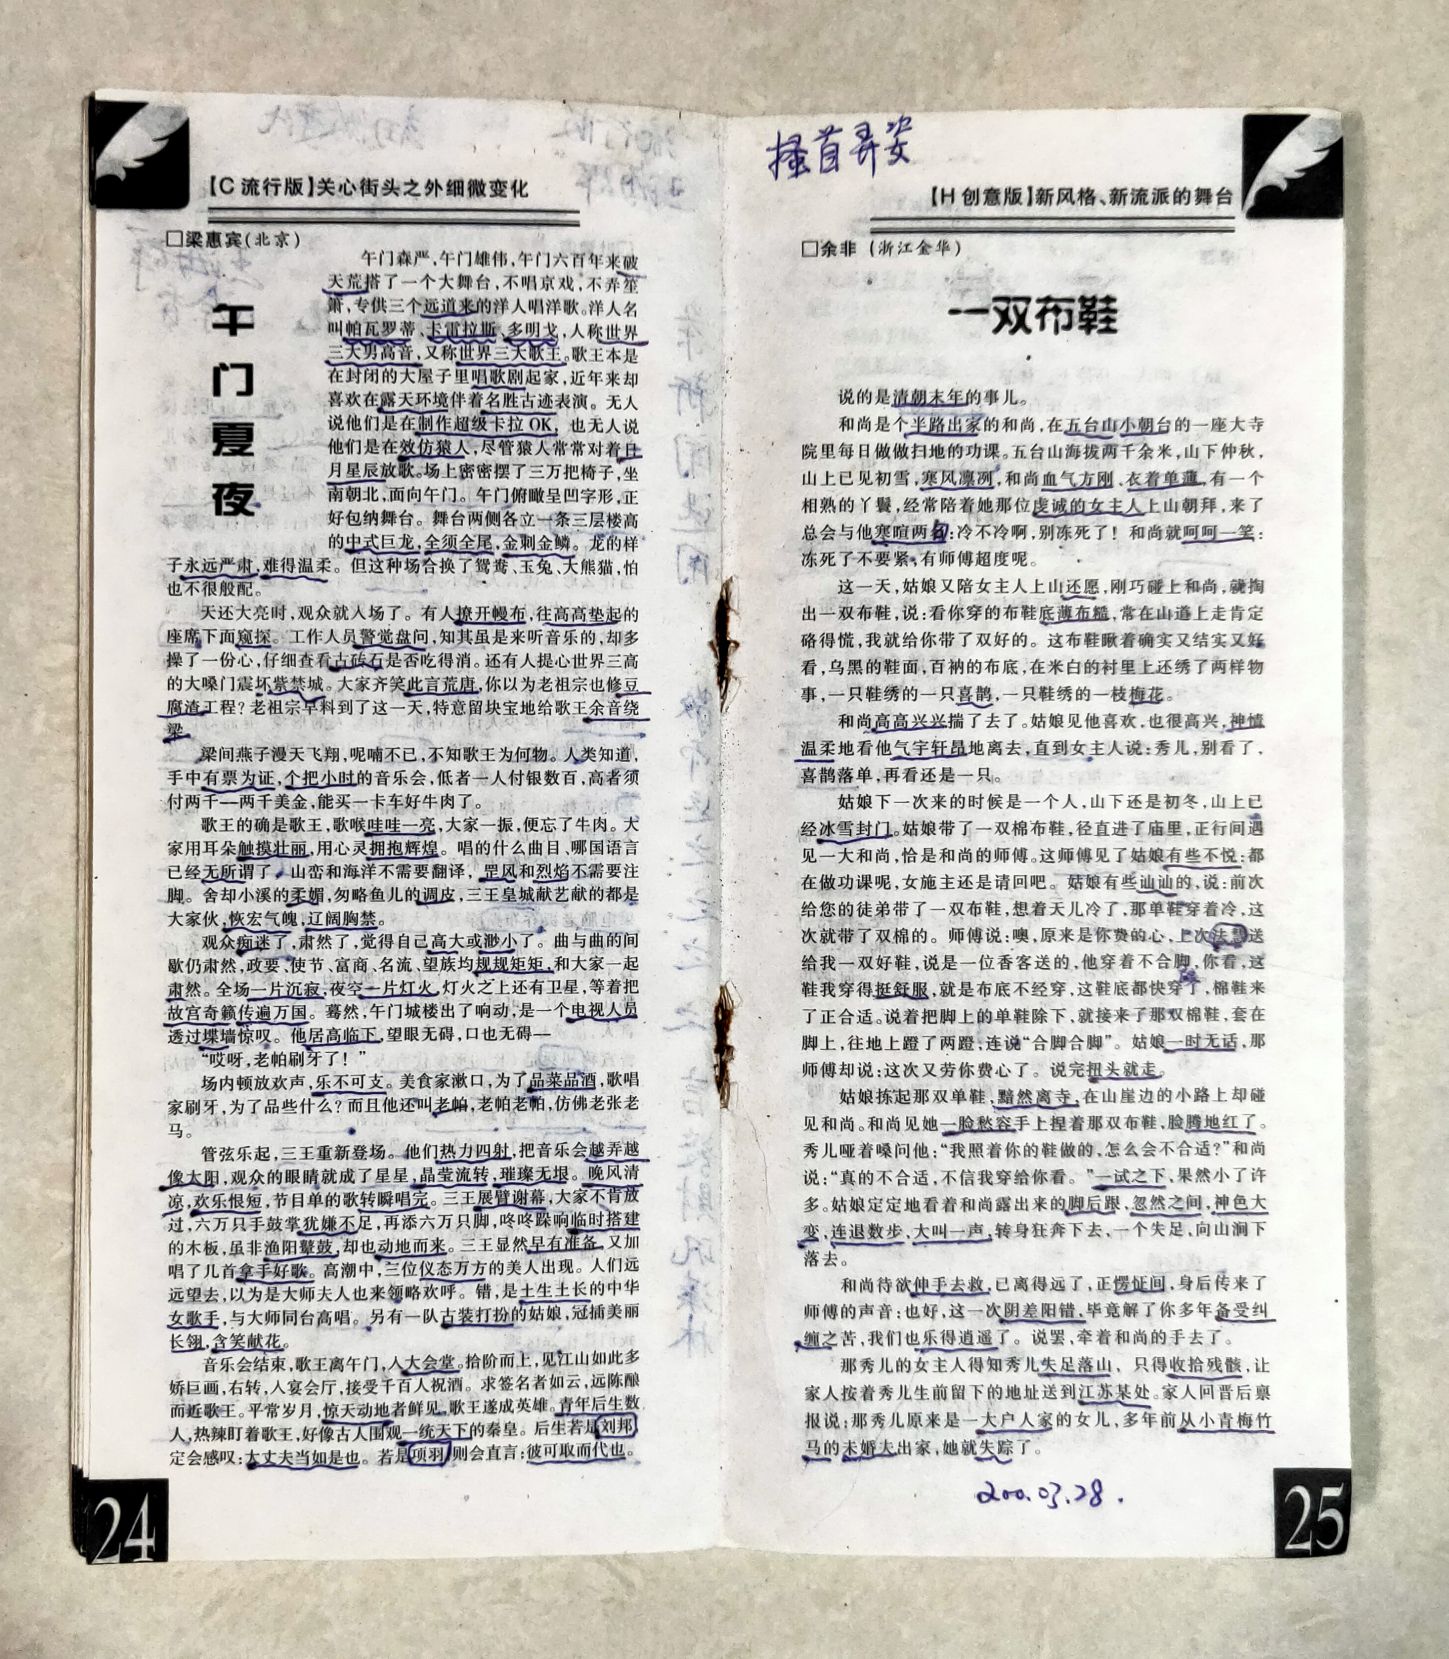 【C 流行版】关心街头之外细微变化
□梁惠宾(北京)
午门夏夜
午门森严,午门雄伟,午门六百年来破
天荒搭了一个大舞台,不唱京戏,不弄笙
箫,专供三个远道来的洋人唱洋歌。洋人名
叫帕瓦罗蒂、卡雷拉斯、多明戈,人称世界
三大男高音,又称世界三大歌王。歌王本是
在封闭的大屋子里唱歌剧起家,近年来却
喜欢在露天环境伴着名胜古迹表演。无人
说他们是在制作超级卡拉OK,也无人说
他们是在效仿猿人,尽管猿人常常对着日
月星辰放歌。场上密密摆了三万把椅子,坐
南朝北,面向午门。午门俯瞰呈凹字形,正
好包纳舞台。舞台两侧各立一条三层楼高
的中式巨龙,全须全尾,金刺金鳞。龙的样
子永远严肃,难得温柔。但这种场合换了鸳鸯、玉兔、大熊猫,怕
也不很般配。
天还大亮时,观众就入场了。有人撩开幔布,往高高垫起的
座席下面窥探。工作人员警觉盘问,知其虽是来听音乐的,却多
操了一份心,仔细查看古砖石是否吃得消。还有人提心世界三高
的大嗓门震坏紫禁城。大家齐笑此言荒唐,你以为老祖宗也修豆
腐渣工程?老祖宗早料到了这一天,特意留块宝地给歌王余音绕
梁。
梁间燕子漫天飞翔,呢喃不已,不知歌王为何物。人类知道,
手中有票为证,个把小时的音乐会,低者一人付银数百,高者须
付两千—两千美金,能买一卡车好牛肉了。
歌王的确是歌王,歌喉哇哇一亮,大家一振,便忘了牛肉。大
家用耳朵触摸壮丽,用心灵拥抱辉煌。唱的什么曲目、哪国语言
已经无所谓了。山峦和海洋不需要翻译,罡风和烈焰不需要注
脚。舍却小溪的柔媚,匆略鱼儿的调皮,三王皇城献艺献的都是
大家伙,恢宏气魄,辽阔胸禁。
观众痴迷了,肃然了,觉得自己高大或渺小了。曲与曲的间
歇仍肃然,政要、使节、富商、名流、望族均规规矩矩,和大家一起
肃然。全场一片沉寂,夜空一片灯火,灯火之上还有卫星,等着把
故宫奇籁传遍万国。蓦然,午门城楼出了响动,是一个电视人员
透过堞墙惊叹。他居高临下,望眼无碍,口也无碍—
“哎呀,老帕刷牙了!”
场内顿放欢声,乐不可支。美食家漱口,为了品菜品酒,歌唱
家刷牙,为了品些什么?而且他还叫老帕,老帕老帕,仿佛老张老
马。
管弦乐起,三王重新登场。他们热力四射,把音乐会越弄越
像太阳,观众的眼睛就成了星星,晶莹流转,璀璨无垠。晚风清
凉,欢乐恨短,节目单的歌转瞬唱完。三王展臂谢幕,大家不肯放
过,六万只手鼓掌犹嫌不足,再添六万只脚,咚咚跺响临时搭建
的木板,虽非渔阳鼙鼓,却也动地而来。三王显然早有准备,又加
唱了几首拿手好歌。高潮中,三位仪态万方的美人出现。人们远
远望去,以为是大师夫人也来领略欢呼。错,是土生土长的中华
女歌手,与大师同台高唱。另有一队古装打扮的姑娘,冠插美丽
长翎,含笑献花。
音乐会结束,歌王离午门,入大会堂。拾阶而上,见江山如此多
娇巨画,右转,入宴会厅,接受千百人祝酒。求签名者如云,远陈酿
而近歌王。平常岁月,惊天动地者鲜见,歌王遂成英雄。青年后生数
人,热辣盯着歌王,好像古人围观一统天下的秦皇。后生若是刘邦
定会感叹:大丈夫当如是也。若是项羽则会直言:彼可取而代也。
24
搔首弄姿
【H 创意版】新风格、新流派的舞台
□余非 (浙江金华)
一双布鞋
说的是清朝末年的事儿。
和尚是个半路出家的和尚,在五台山小朝台的一座大寺
院里每日做做扫地的功课。五台山海拔两千余米,山下仲秋,
山上已见初雪,寒风凛冽,和尚血气方刚、衣着单薄,有一个
相熟的丫鬟,经常陪着她那位虔诚的女主人上山朝拜,来了
总会与他寒喧两句:冷不冷啊,别冻死了!和尚就呵呵一笑:
冻死了不要紧,有师傅超度呢。
这一天,姑娘又陪女主人上山还愿,刚巧碰上和尚,就掏
出一双布鞋,说:看你穿的布鞋底薄布糙,常在山道上走肯定
硌得慌,我就给你带了双好的。这布鞋瞅着确实又结实又好
看,乌黑的鞋面,百衲的布底,在米白的衬里上还绣了两样物
事,一只鞋绣的一只喜鹊,一只鞋绣的一枝梅花。
和尚高高兴兴揣了去了。姑娘见他喜欢,也很高兴,神情
温柔地看他气宇轩昂地离去,直到女主人说:秀儿,别看了,
喜鹊落单,再看还是一只。
姑娘下一次来的时候是一个人,山下还是初冬,山上已
经冰雪封门。姑娘带了一双棉布鞋,径直进了庙里,正行间遇
见一大和尚,恰是和尚的师傅。这师傅见了姑娘有些不悦:都
在做功课呢,女施主还是请回吧。姑娘有些讪讪的,说:前次
给您的徒弟带了一双布鞋,想着天儿冷了,那单鞋穿着冷,这
次就带了双棉的。师傅说:噢,原来是你费的心,上次法慧送
给我一双好鞋,说是一位香客送的,他穿着不合脚,你看,这
鞋我穿得挺舒服,就是布底不经穿,这鞋底都快穿了,棉鞋来
了正合适。说着把脚上的单鞋除下,就接来了那双棉鞋,套在
脚上,往地上蹬了两蹬,连说“合脚合脚”。姑娘一时无话,那
师傅却说:这次又劳你费心了。说完扭头就走。
姑娘拣起那双单鞋,黯然离寺,在山崖边的小路上却碰
见和尚。和尚见她一脸愁容手上捏着那双布鞋,脸腾地红了。
秀儿哑着嗓问他:“我照着你的鞋做的,怎么会不合适?”和尚
说:“真的不合适,不信我穿给你看。”一试之下,果然小了许
多。姑娘定定地看着和尚露出来的脚后跟,忽然之间,神色大
变,连退数步,大叫一声,转身狂奔下去,一个失足,向山涧下
落去。
和尚待欲伸手去救,已离得远了,正愣怔间,身后传来了
师傅的声音:也好,这一次阴差阳错,毕竟解了你多年备受纠
缠之苦,我们也乐得逍遥了。说罢,牵着和尚的手去了。
那秀儿的女主人得知秀儿失足落山,只得收拾残骸,让
家人按着秀儿生前留下的地址送到江苏某处。家人回晋后禀
报说:那秀儿原来是一大户人家的女儿,多年前从小青梅竹
马的未婚夫出家,她就失踪了。
200.03.28.
25